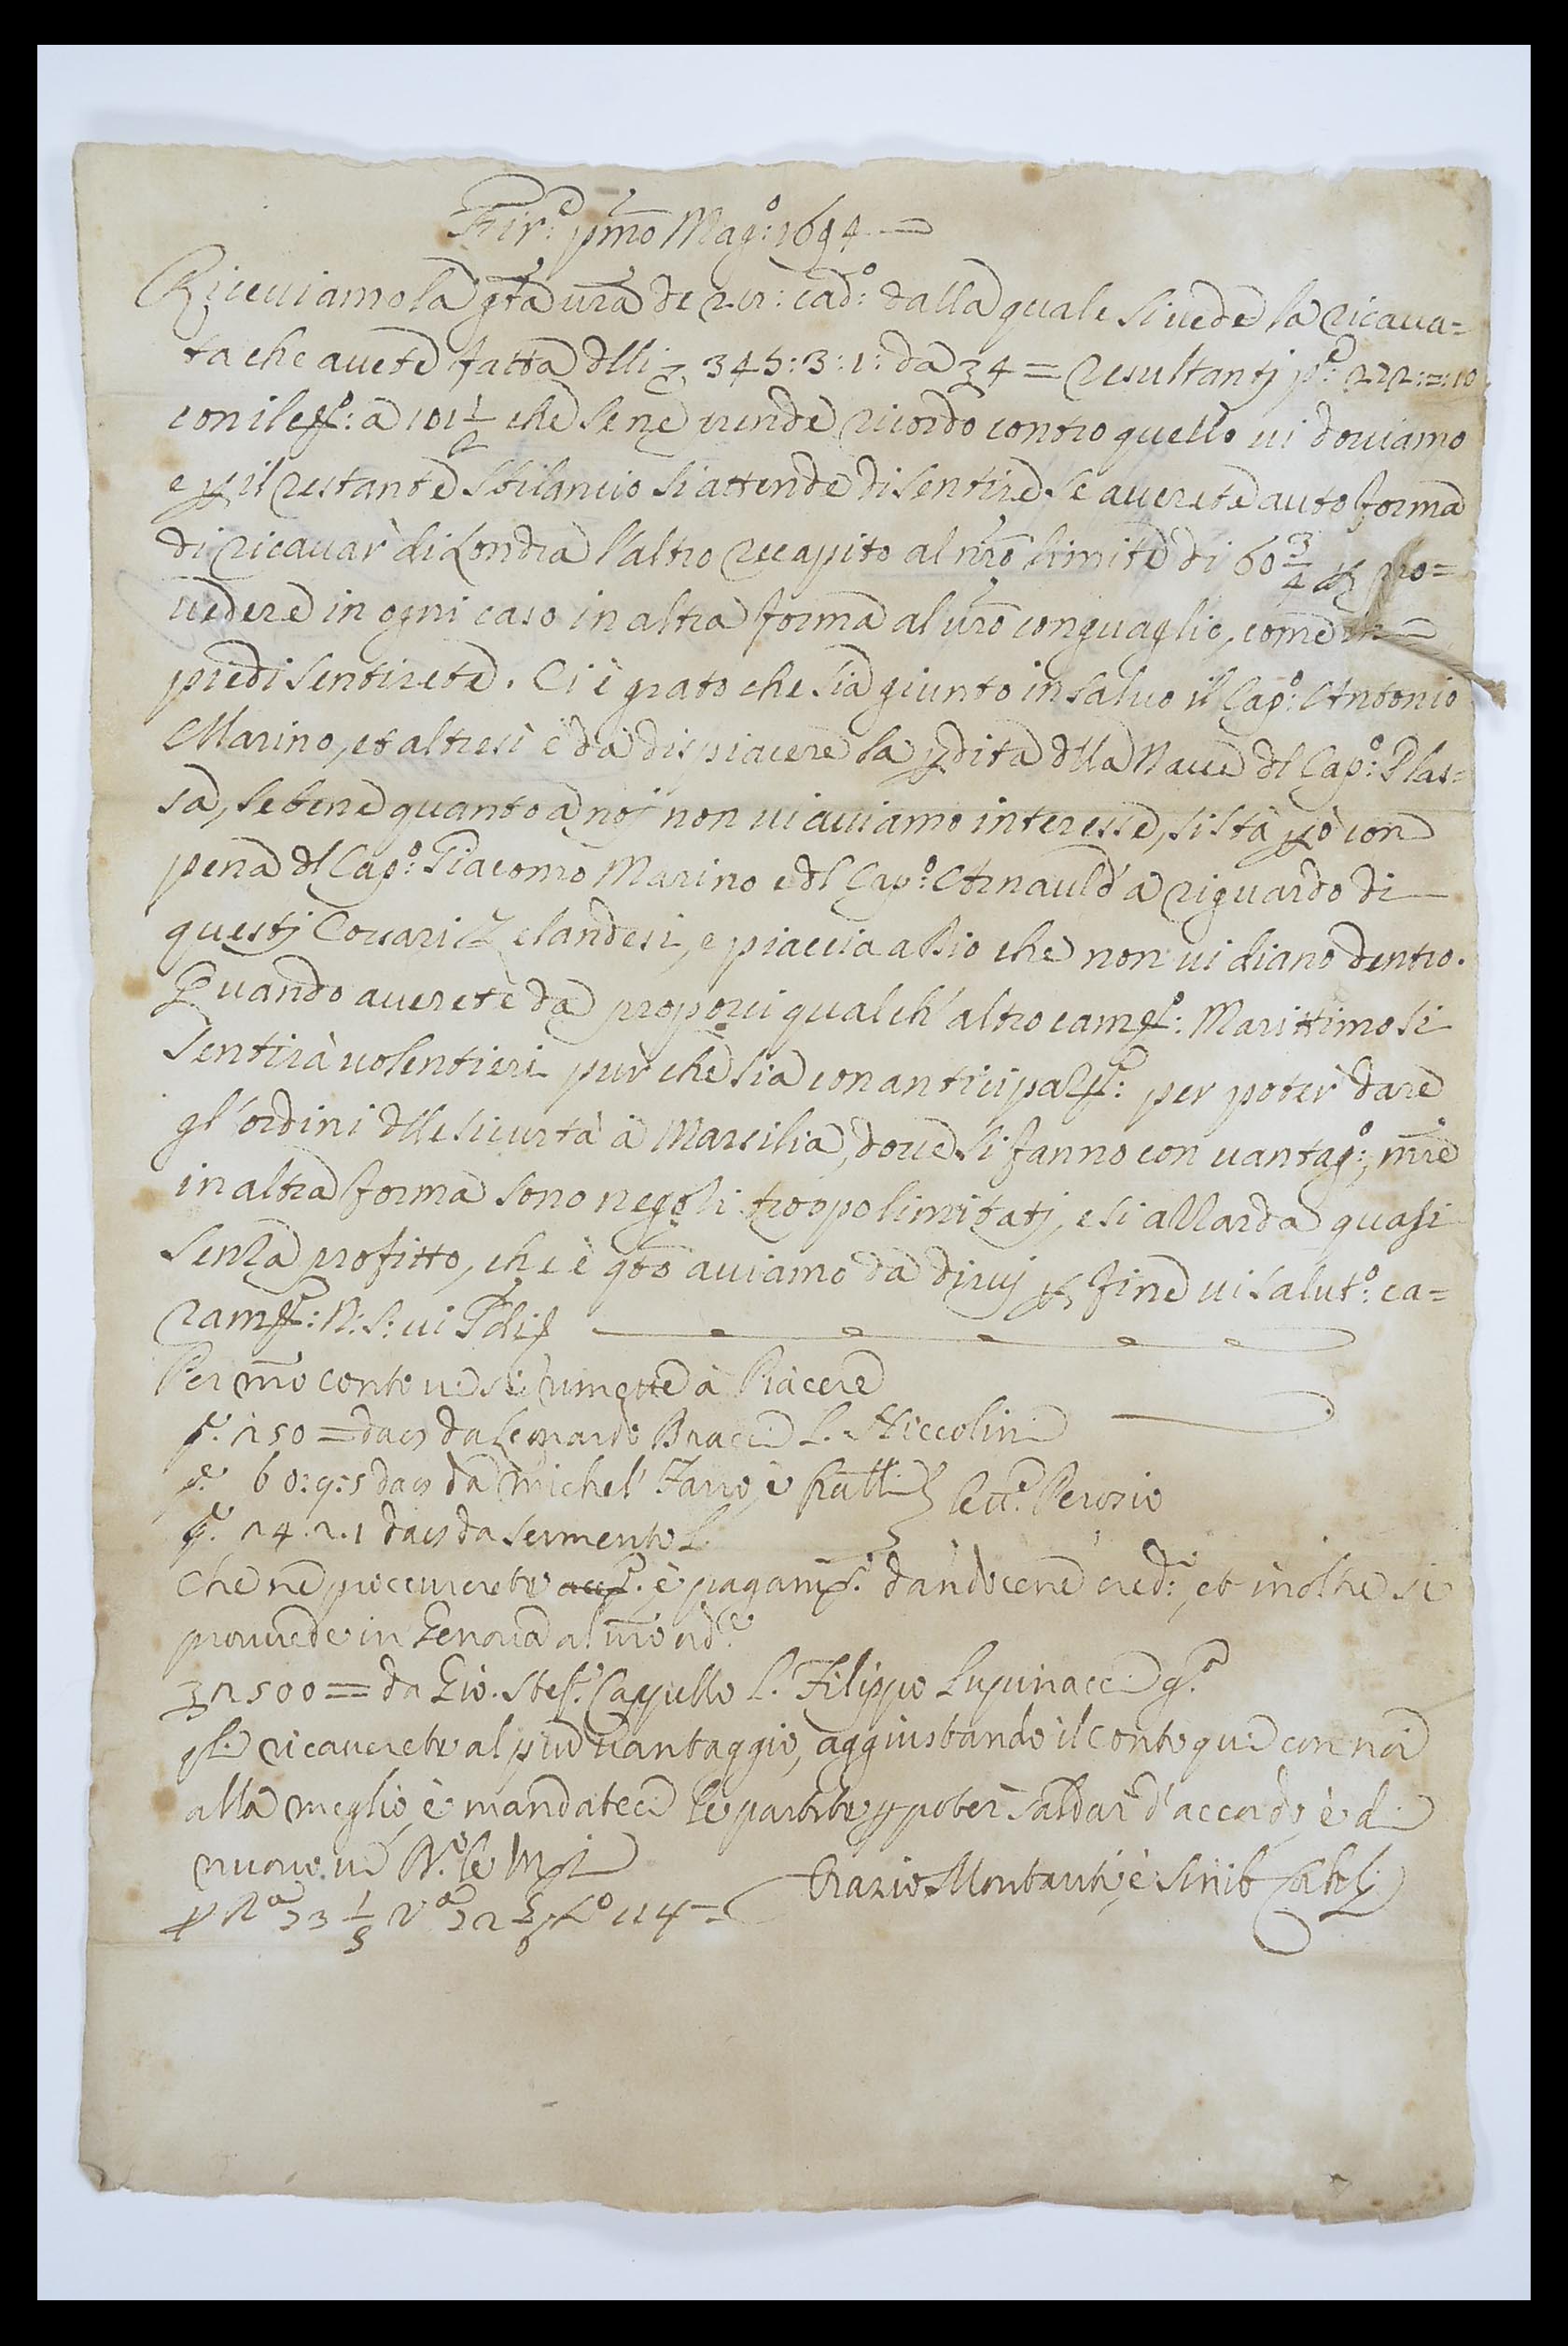 Fir.e pmo Mag.o: 1694 =
Riceviamo la grta vra de 21: cad.o: dalla quale si vede la ricava=
ta che avete fatta dlli 345:3:1: da 34 = resultantj p.e 272:=:10
con il a 101 1/2 che se ne prende ricordo contro quello vi doviamo
e p il restante sbilancio si attende di sentire se averete auto forma
di ricavar di Londra l'altro recapito al nro limite di 60 3/4 p pro=
vedere in ogni caso in altra forma al vro conguaglio, come in=
predi sentirete. Ci è grato che sia giunto in salvo il Cap.o: Antonio
Marino, et altresì è da dispiacere la pdita dlla Nave dl Cap.o: Plas=
sa, se bene quanto a noj non vi aviamo interesse, si stà pò con
pena dl Cap.o: Giacomo Marino e dl Cap.o: Arnauld a riguardo di
questj Corsari Zelandesi, e piaccia a Dio che non vi diano dentro.
Quando averete da proporci qualch' altro camb.o: Marittimo si
sentirà volentieri pur che sia con anticipaz.e: per poter dare
gl'ordini dlle sicurtà à Marsilia, dove si fanno con vantag.o:, mtre
in altra forma sono negozi troppo limitatj, e si azzarda quasi
senza profitto, che è qto aviamo da dirvj p fine vi salut.o: ca=
ram.te: N: S: vi Pdi
Per mo conto vi si rimette à Piacere
p. 150 = dacs da Leonardo Bracci L. Niccolini
p. 60:9:5 dacs da Michel' Farro, è fratlli Lett.e Perozio
p. 24.2.1 dacs da Sermento L.
che ne procurerete è pagam.to dandocene cred.o, et inoltre si
provvede in Genova al vro ord.e
3 2500 = da Gio. Stef.o Cappello L. Filippo Lupinacci q.
qli ricaverete al più vantaggio, aggiustando il Conto qui con noi
alla meglio, è mandateci le partite p poter saldar d'accordo, è di
nuovo vi
Orazio Montauti, è Sinib
114 =